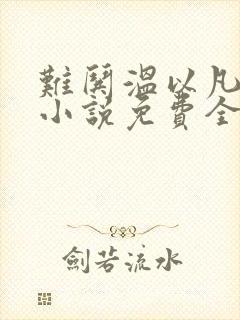 難鬨溫以凡
小說免費全
劍若流水